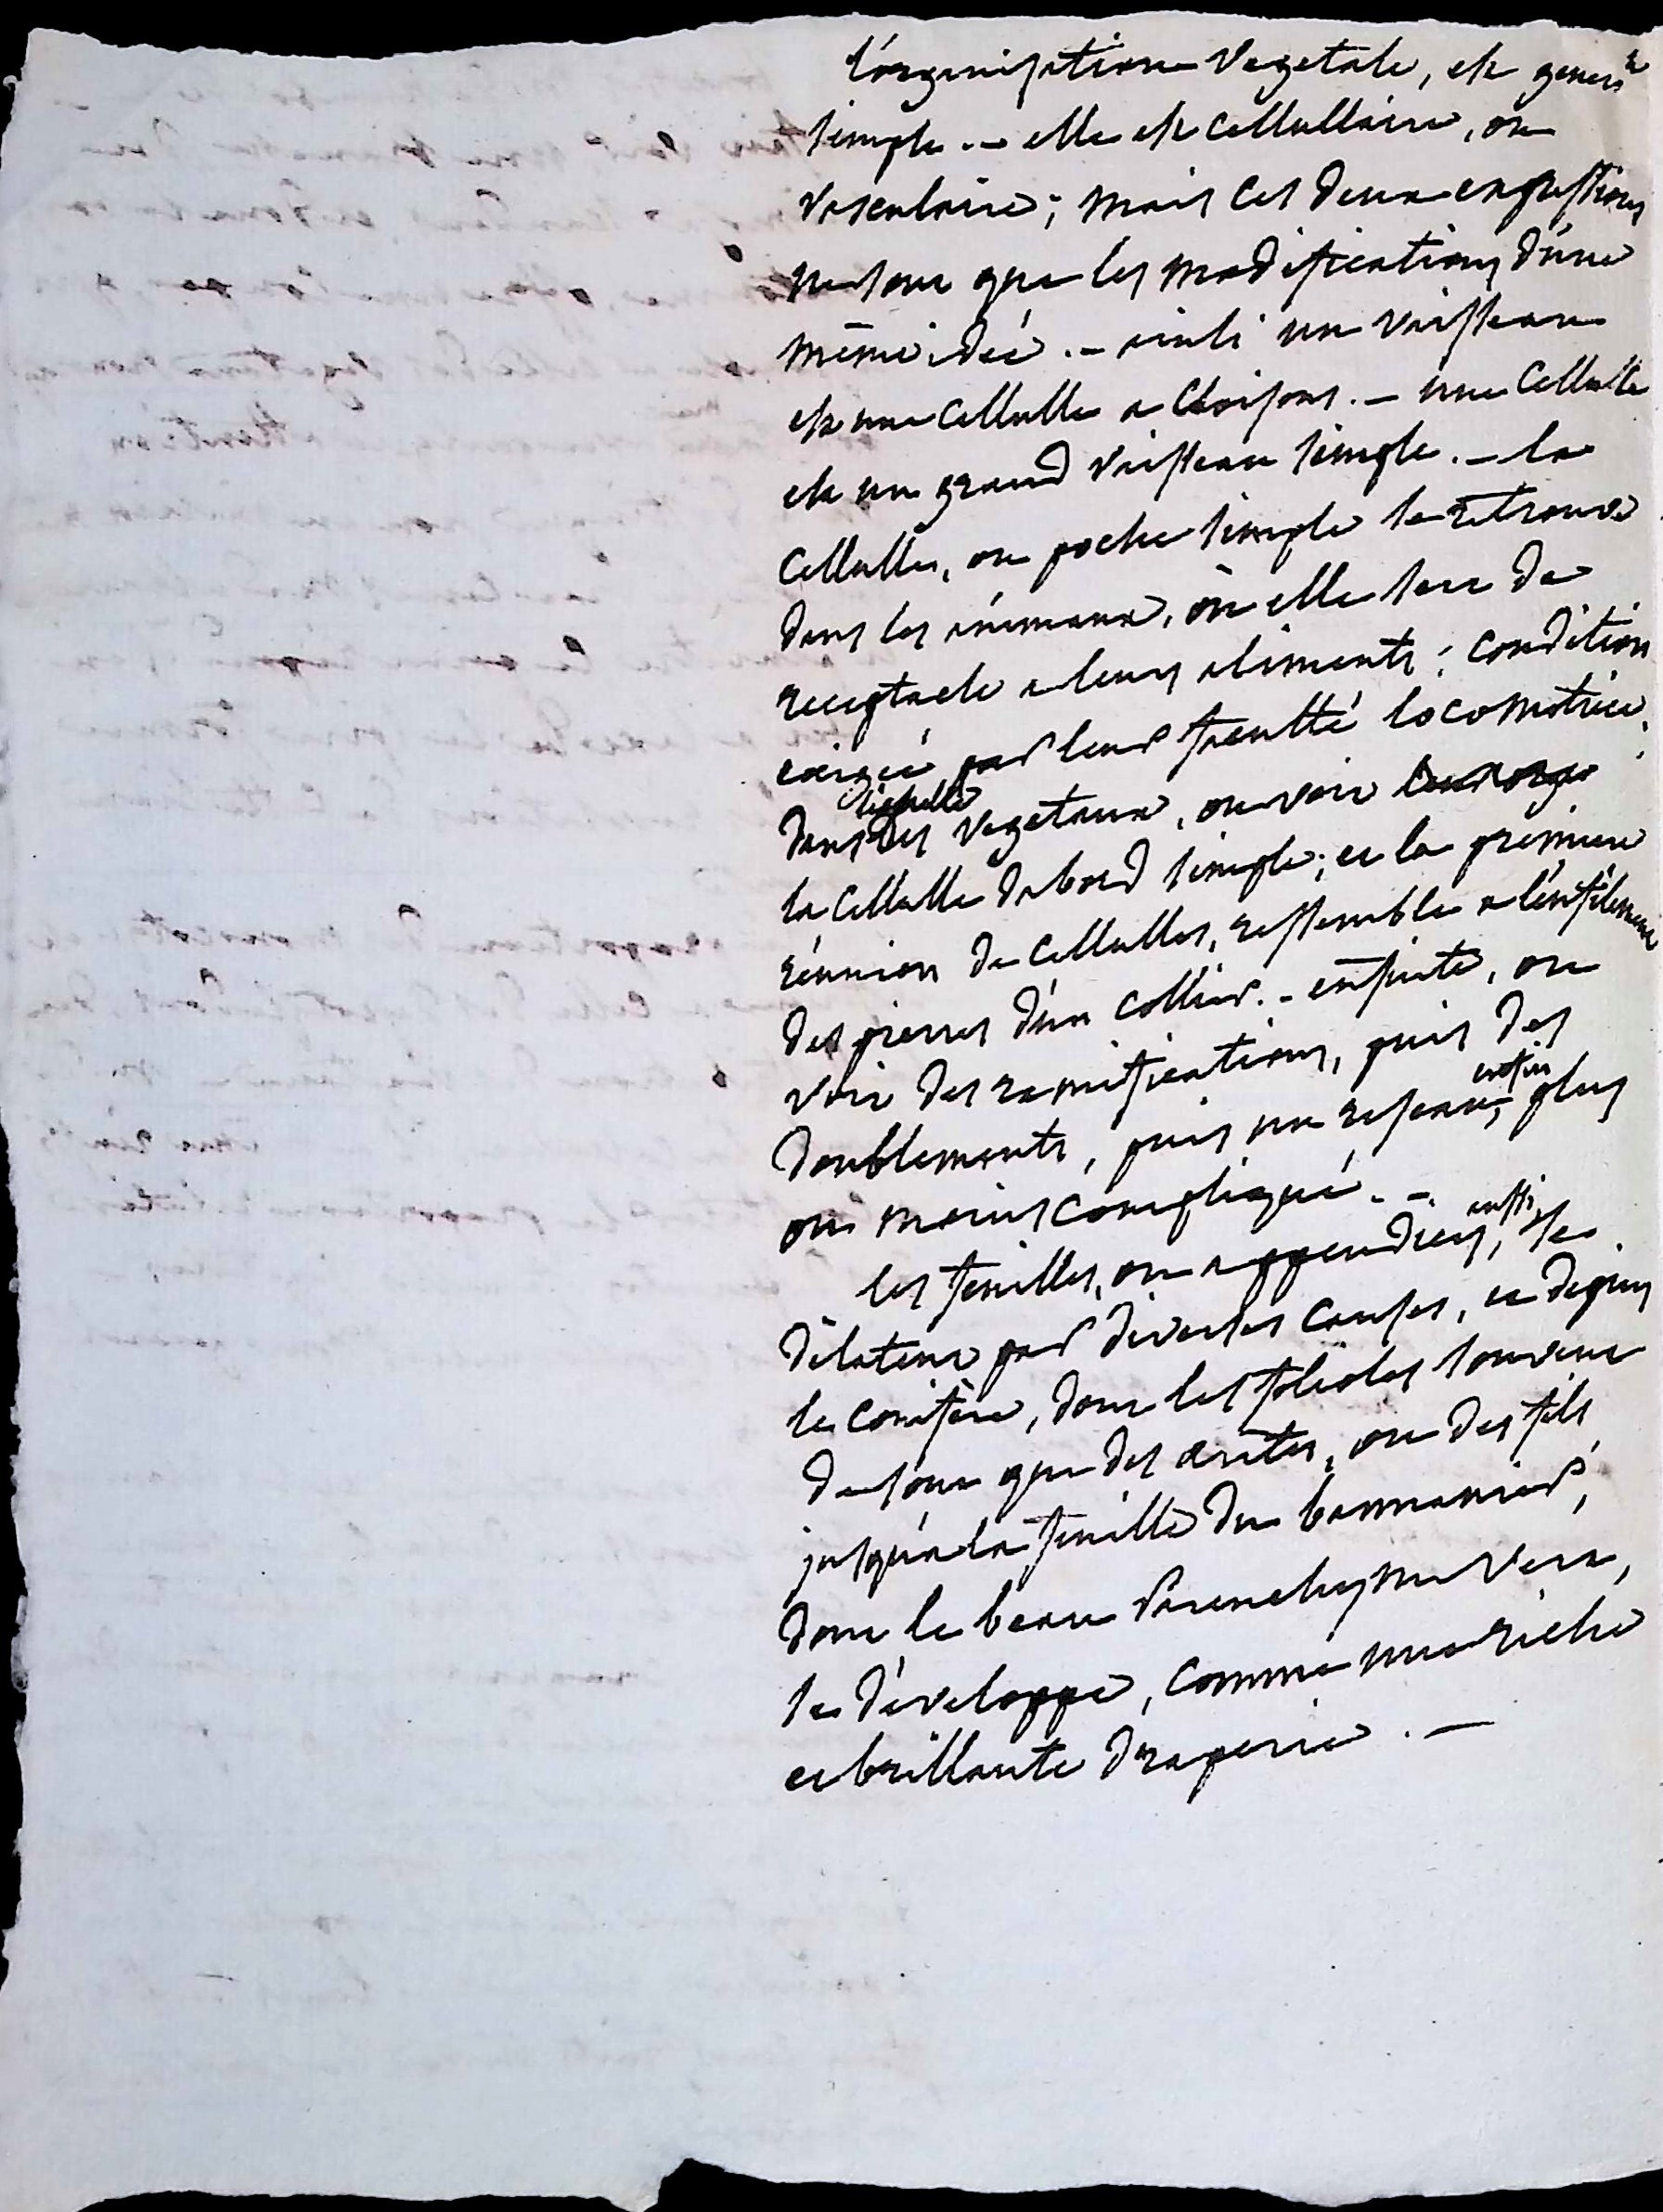 l'organisation Vegetale, est gener.t
simple. — elle est cellullaire, ou
vasculaire; mais ces deux expressions
ne sont que les modifications d'une
même idée. — ainsi un vaisseau
est une cellulle a cloisons. — une cellulle
est un grand vaisseau simple. — la
cellulle, ou poche simple se retrouve
dans les animaux, où elle sert de
receptacle a leurs aliments; condition
exigée par leur faculté locomotrice.
dans l'echelle des vegetaux, on voit leur orga
la cellulle dabord simple; et la premiere
réunion de cellulles, ressemble a l'enfilement
des pierres d'un collier. — ensuite, on
voit des ramifications, puis des
doublements, puis un reseau, enfin plus
ou moins compliqué. —.
les feuilles, ou appendices, aussi, se
dilatent par diverses causes, et depuis
le conifère, dont les folioles souvent
de sont que des aretes, ou des fils
jusqu'a la feuille du bannanier,
dont le beau Parenchyme vert,
se développe, comme une riche
et brillante draperie. —